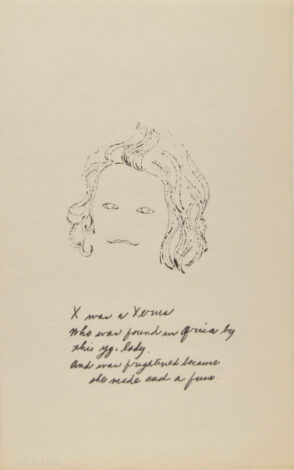 X was a Xerus
Who was found in Africa by
this yg. lady.
And was frightened because
she made such a fuss